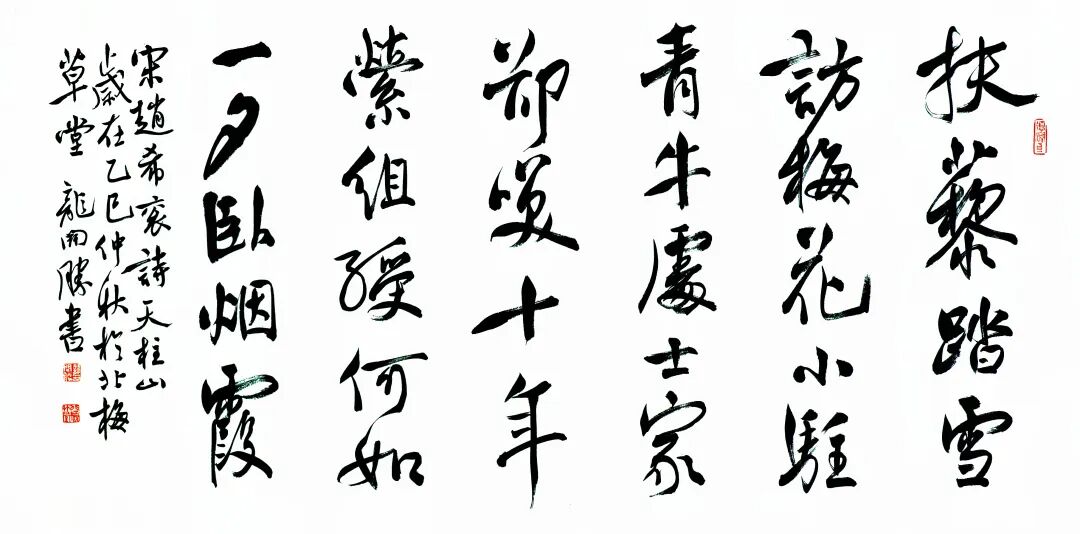 扶藜踏雪
訪梅花小駐
青牛處士家
却笑十年
縈組綬何如
一夕臥烟霞
宋趙希衮詩天柱山
歲在乙巳仲秋於北梅
草堂 龍開勝書